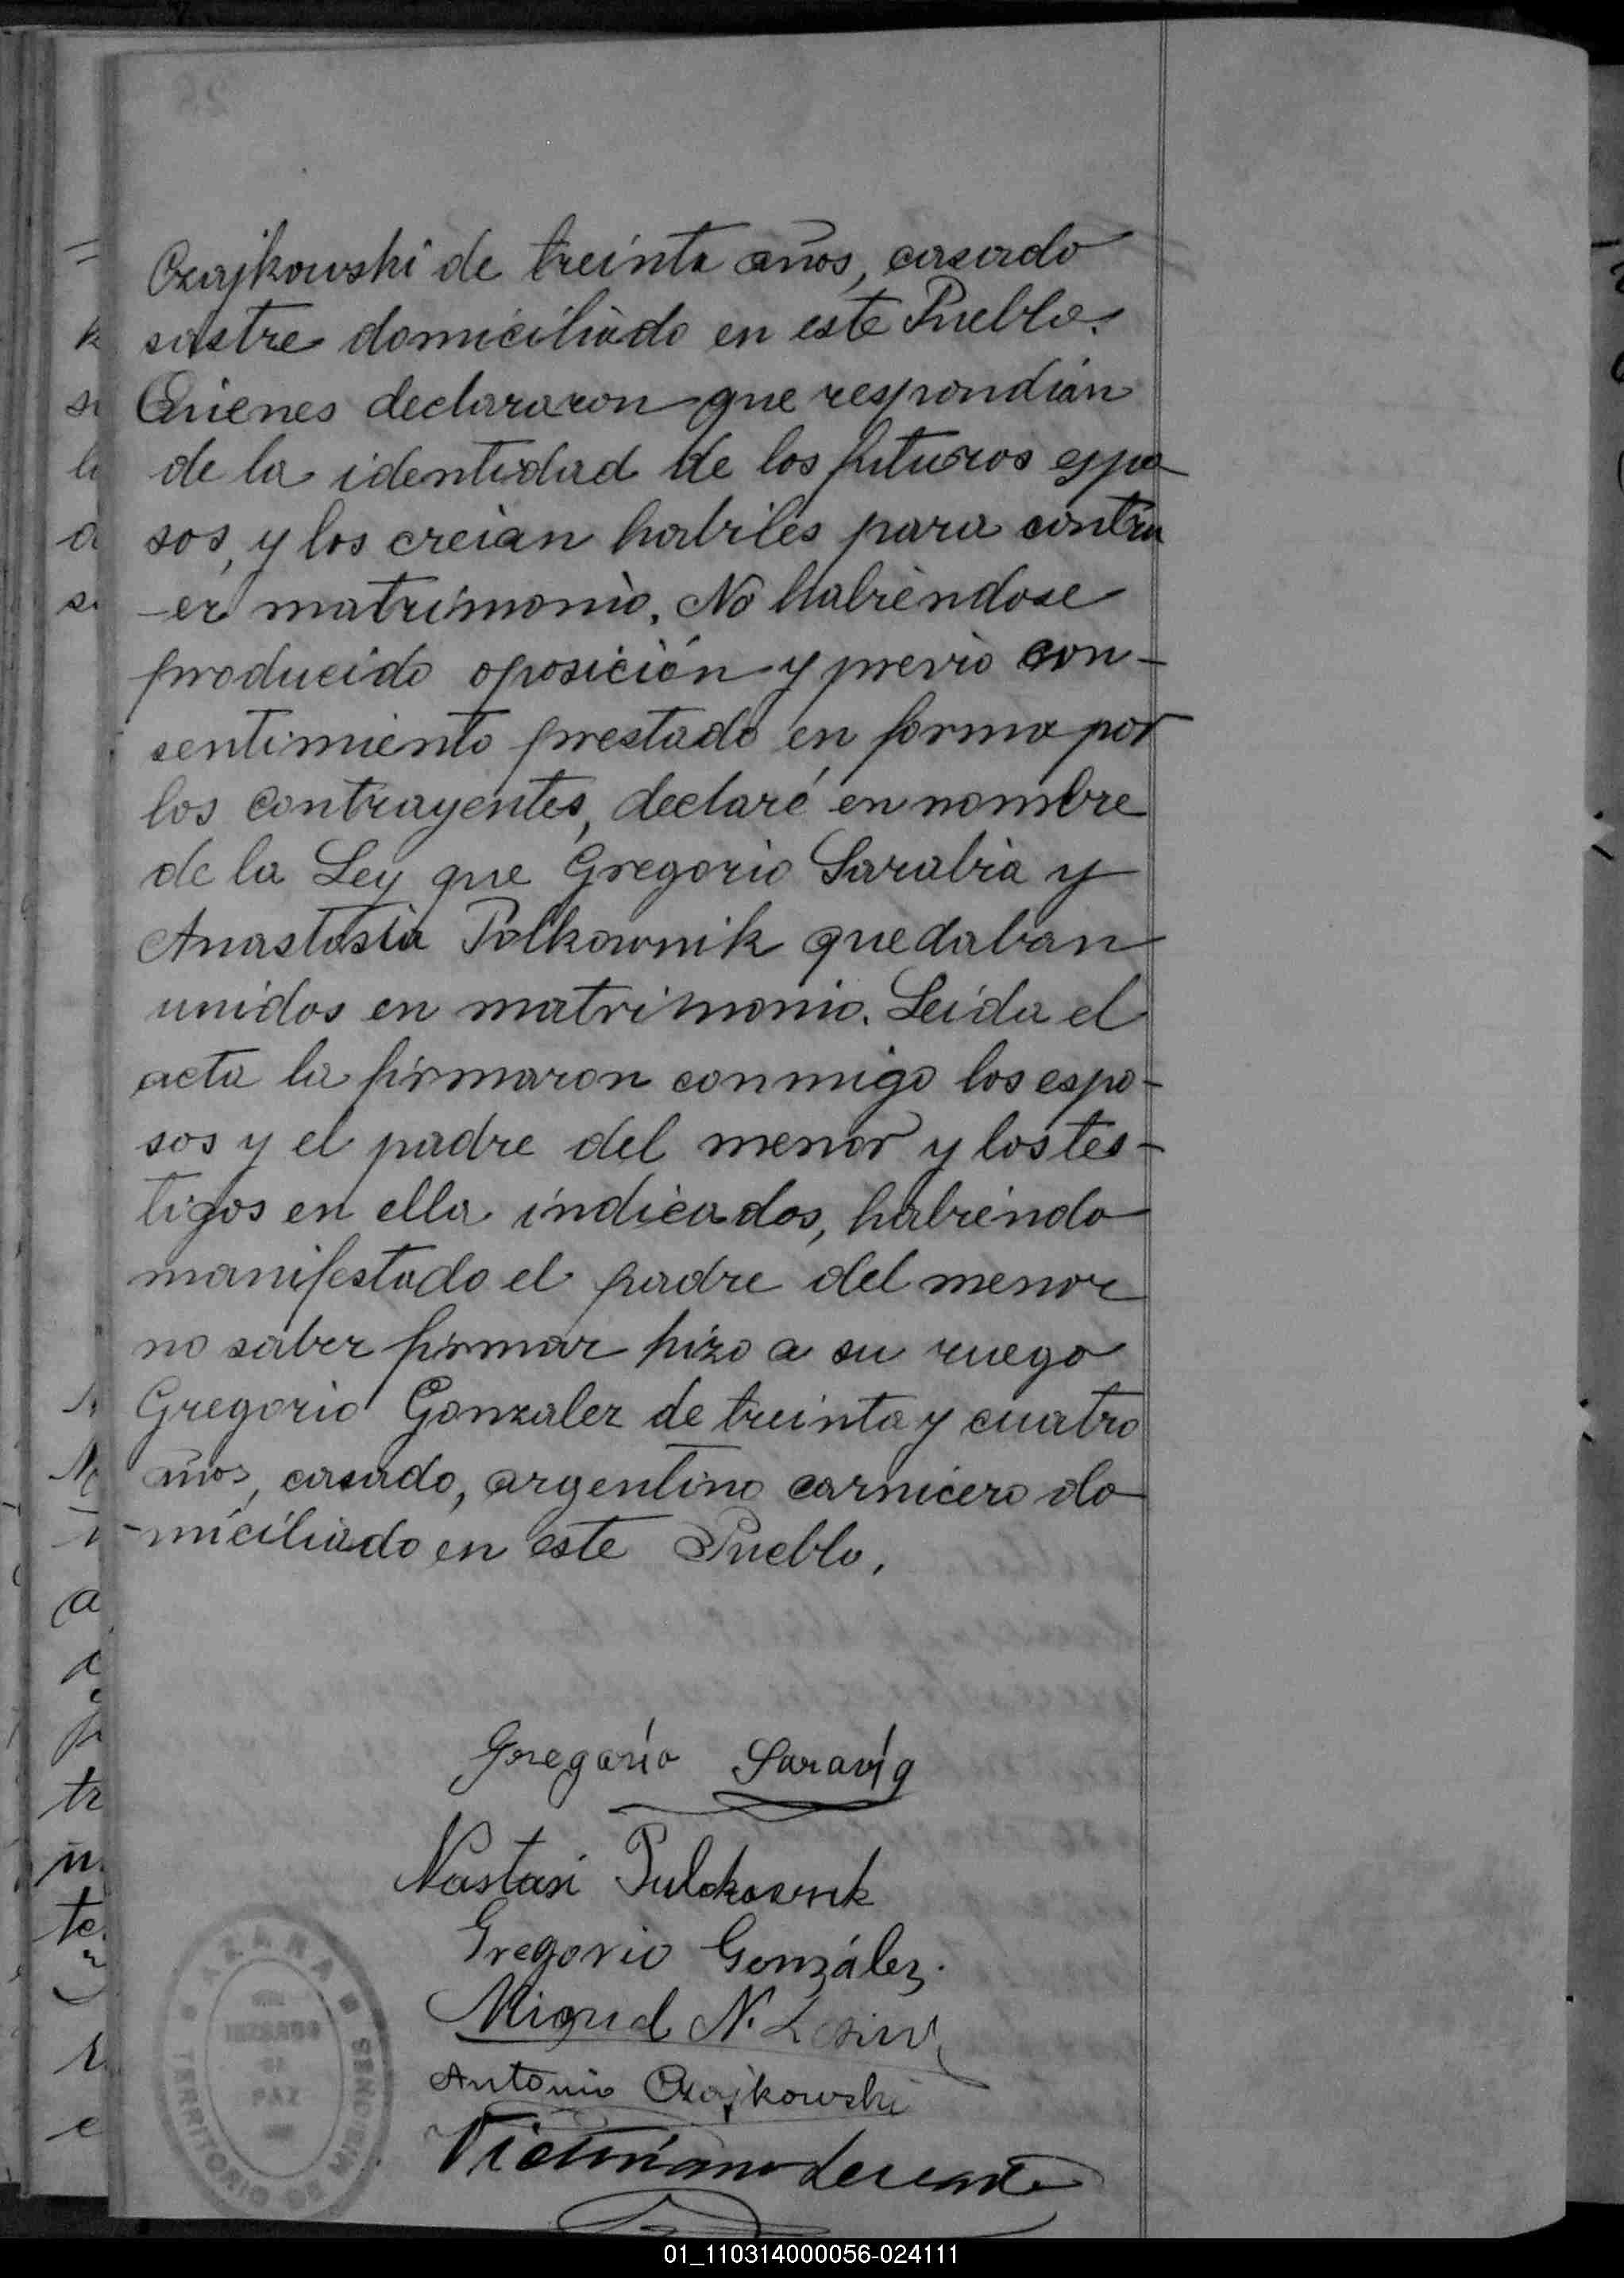 Czajkowski de treinta años, casado
sastre domiciliado en este Pueblo.
Quienes declararon que respondian
de la identidad de los futuros espo
sos, y los creian habiles para contra
-er matrimonio. No habiendose
producido oposición y previo con-
sentimiento prestado en forma por
los contrayentes, declaré en nombre
de la Ley que Gregorio Sarabia y
Anastasia Polkownik quedaban
unidos en matrimonio. Leida el
acta la firmaron conmigo los espo-
sos y el padre del menor y los tes-
tigos en ella indicados, habiendo
manifestado el padre del menor
no saber firmar hizo a su ruego
Gregorio Gonzalez de treinta y cuatro
años, casado, argentino carnicero do
-miciliado en este Pueblo.
Gregorio Saravia
Nastasi Pulckownk
Gregorio González.
Miguel N.
Antonio Czajkowski
Victoriano
AZARA
JUZGADO
DE
PAZ
TERRITORIO DE MISIONES
01_110314000056-024111